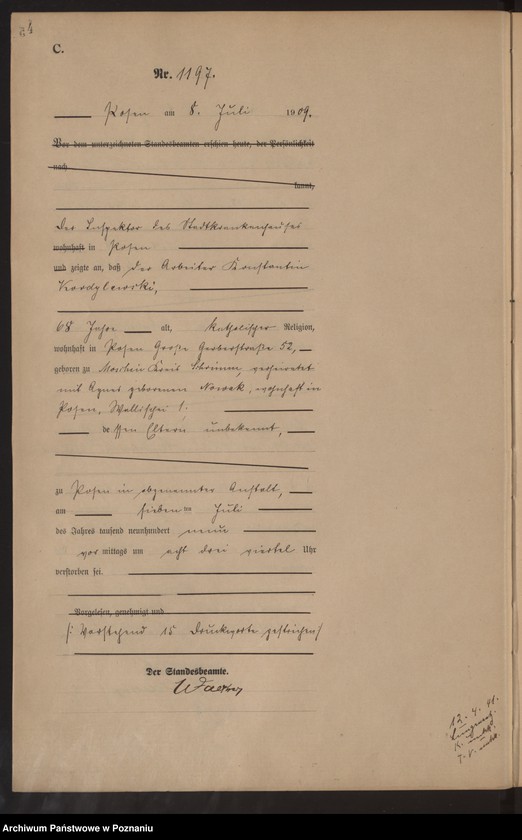 C.
Nr. 1197.
Posen am 8. Juli 1909.
Vor dem unterzeichneten Standesbeamten erschien heute, der Persönlichkeit
nach
kannt,
Der Inspektor des Stadtkrankenhauses
wohnhaft in Posen
und zeigte an, daß der Arbeiter Konstantin
Kordylewski,
68 Jahre alt, katholischer Religion,
wohnhaft in Posen Große Gerberstraße 52,
geboren zu Moschin Kreis Schrimm, verheiratet
mit Agnes geborenen Nowak, wohnhaft in
Posen, Wallischei 1.
dessen Eltern unbekannt,
zu Posen in obgenannter Anstalt,
am sieben ten Juli
des Jahres tausend neunhundert neun
vor mittags um acht drei viertel Uhr
verstorben sei.
Vorgelesen, genehmigt und
/: Vorstehend 15 Druckworte gestrichen /
Der Standesbeamte.
12. 4. 41.
Archiwum Państwowe w Poznaniu